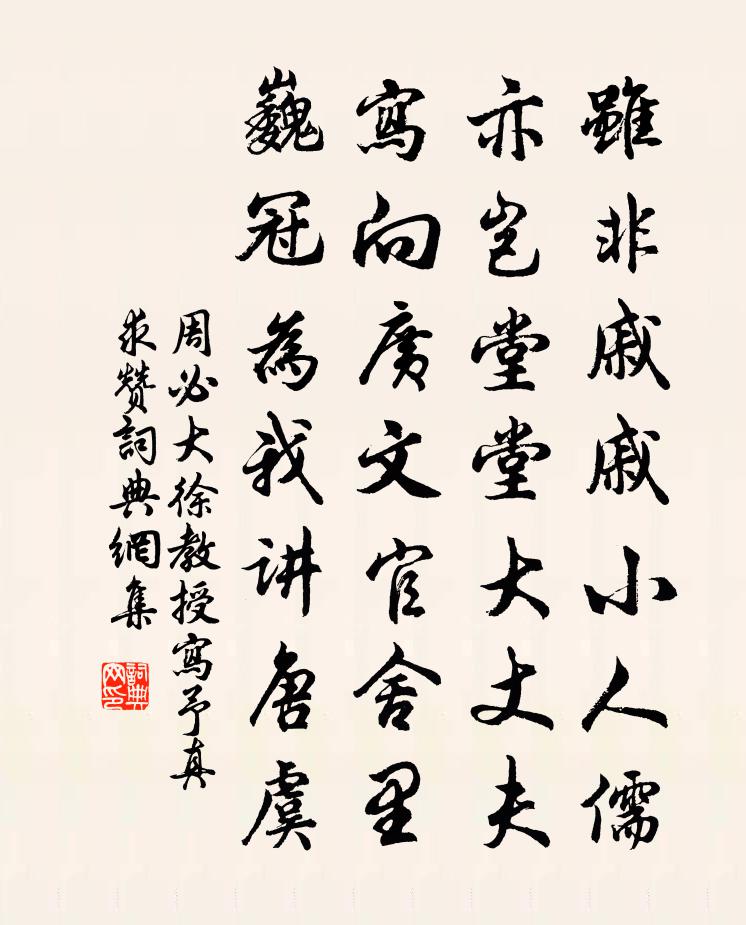 雖非戚戚小人儒
亦岂堂堂大丈夫
寫向廣文官舍里
巍冠為我讲唐虞
周必大徐教授寫予真
求赞詞典網集
詞典
网印